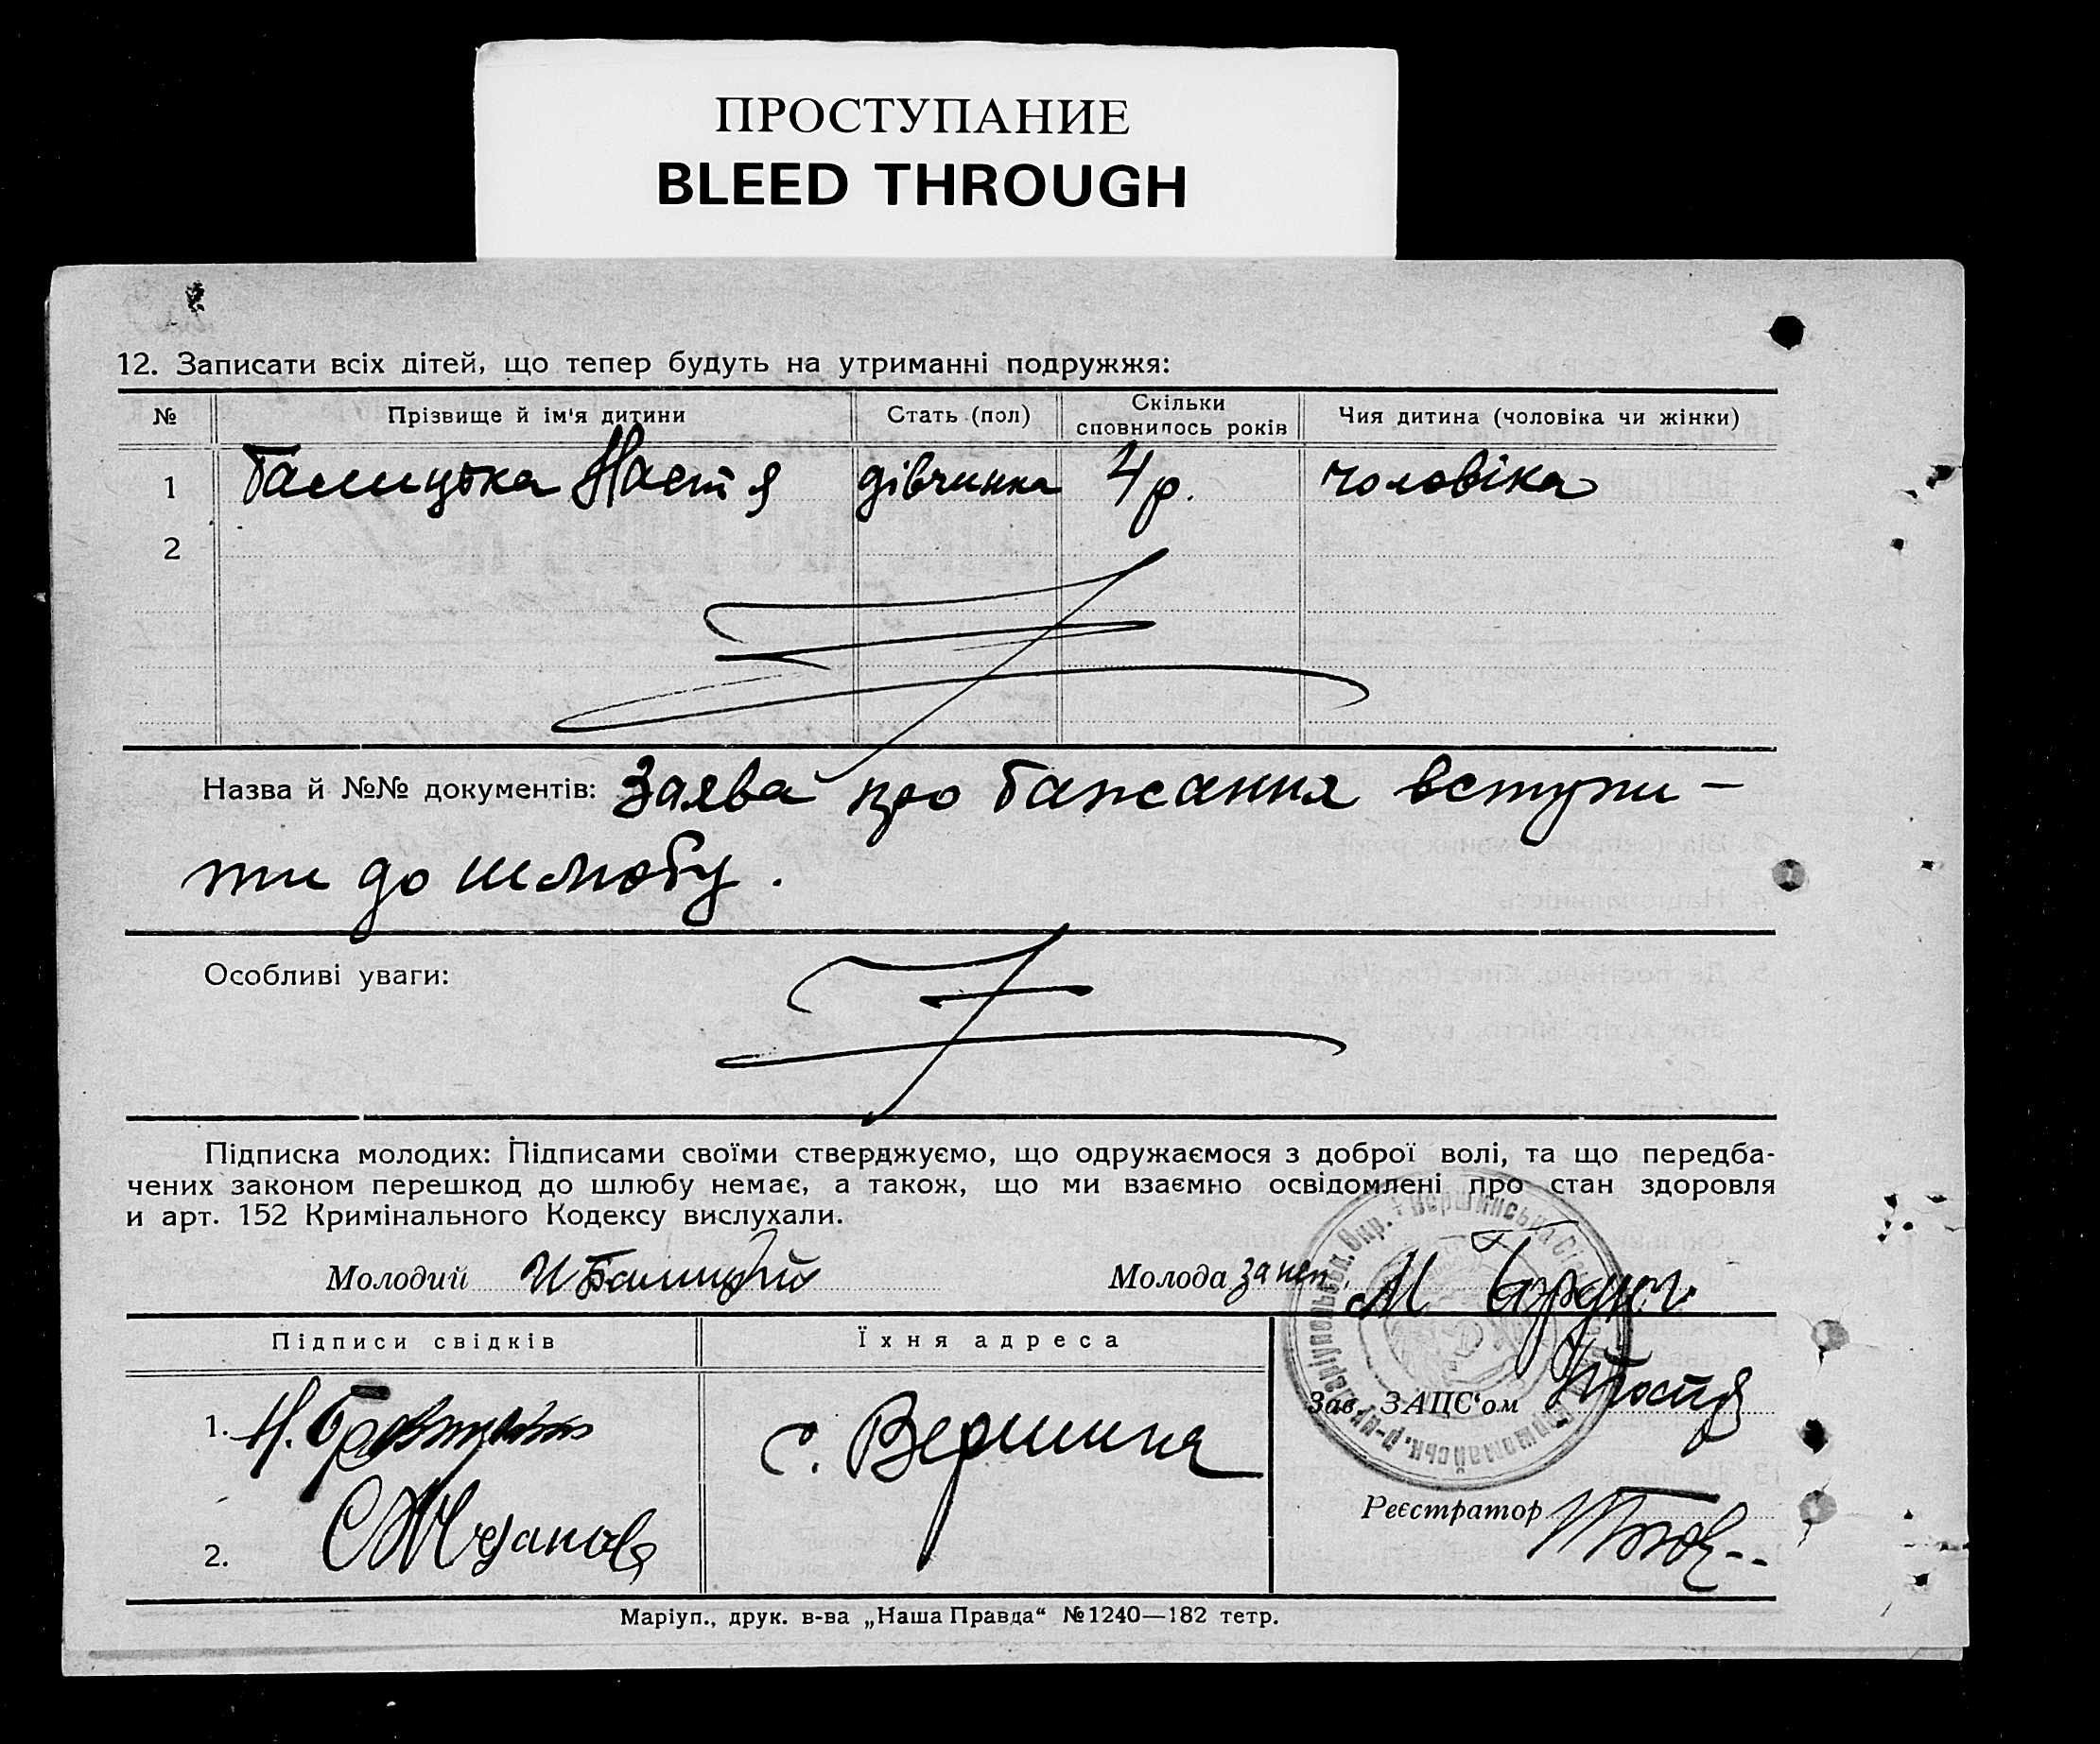 ПРОСТУПАНИЕ
BLEED THROUGH
12. Записати всіх дітей, що тепер будуть на утриманні подружжя:
№ Прізвище й ім'я дитини Стать (пол) Скільки сповнилось років Чия дитина (чоловіка чи жінки)
1 Балицька Настя дівчинка 4 р. чоловіка
2
Назва й №№ документів: Заява про бажання вступи-
ти до шлюбу.
Особливі уваги:
Підписка молодих: Підписами своїми стверджуємо, що одружаємося з доброї волі, та що передба-
чених законом перешкод до шлюбу немає, а також, що ми взаємно освідомлені про стан здоровля
и арт. 152 Кримінального Кодексу вислухали.
Молодий И Балицкий Молода за неп. М
Підписи свідків Їхня адреса
Зав. ЗАЦС'ом
1. с. Вершина
Реєстратор
2.
Маріуп., друк. в-ва „Наша Правда“ №1240—182 тетр.